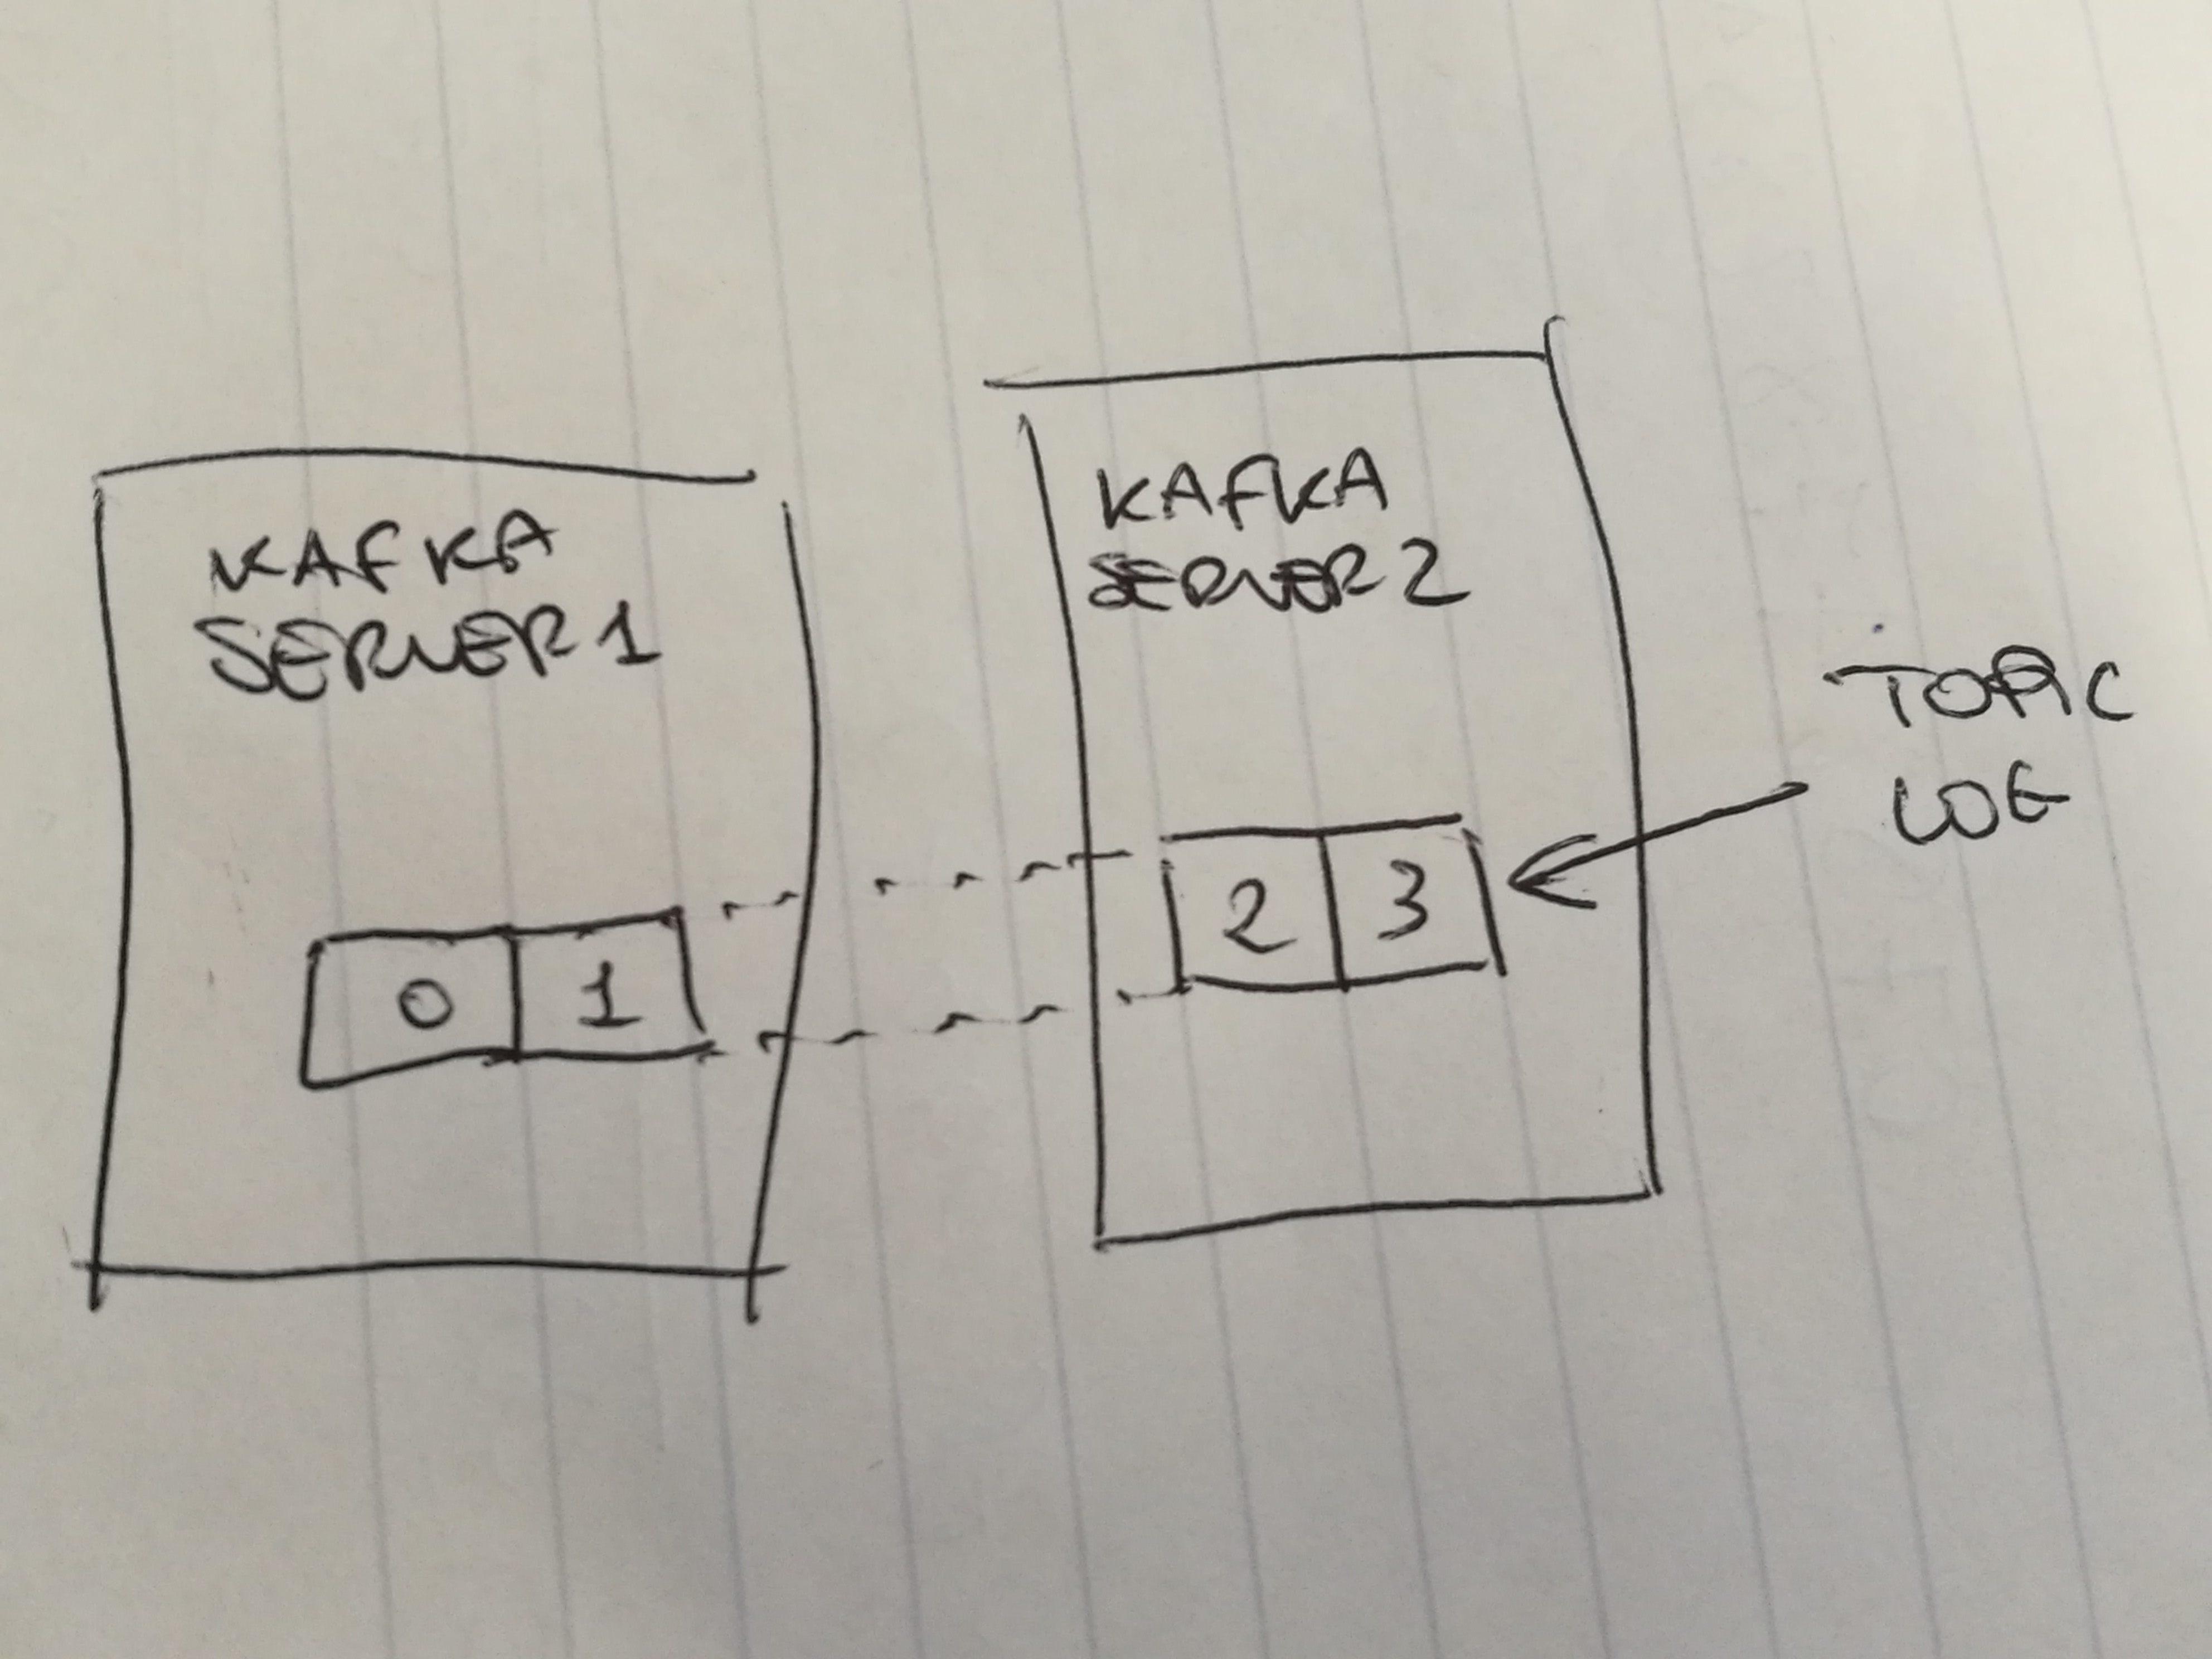 KAFKA
SERVER 1
0 1
KAFKA
SERVER 2
2 3
TOPIC
LOG